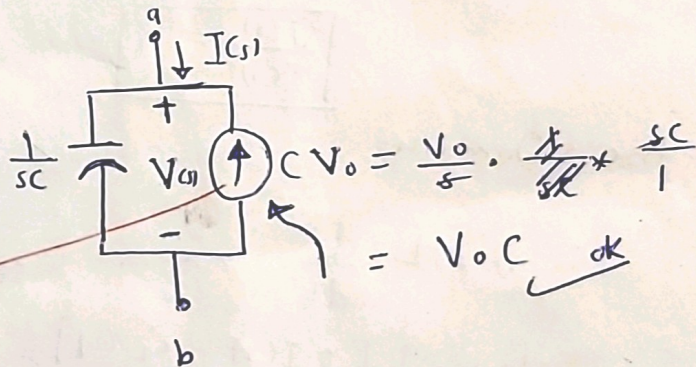 a
I(s)
+
1/sC V(s) CV₀ = V₀/s · 1/sC * sC/1
-
= V₀C ok
b